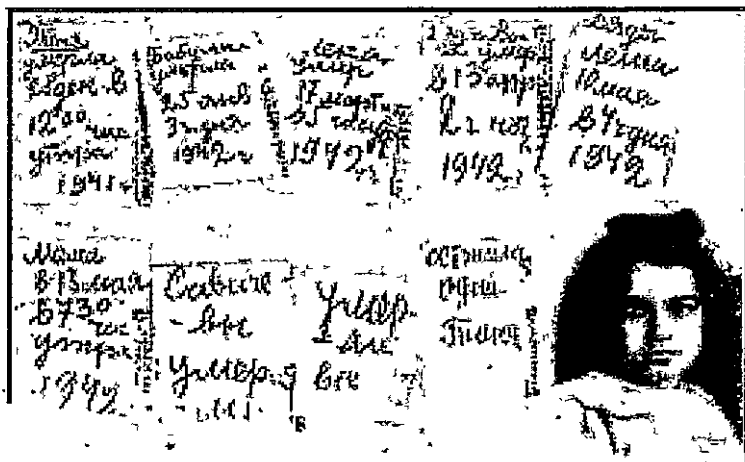 Женя
умерла
28 дек в
12 00 час
утра
1941 г
Бабушка
умерла
25 янв
3 ч дня
1942 г
Лека
умер
17 марта
в 5 час
1942 г
Дядя Вася
умер
в 13 апр
2 ч ноч
1942 г
Дядя
Леша
10 мая
в 4 ч дня
1942
Мама
в 13 мая
в 7 30 час
утра
1942
Савиче
- вы
умерл
- и
Умер
- ли
все
Осталась
одна
Таня